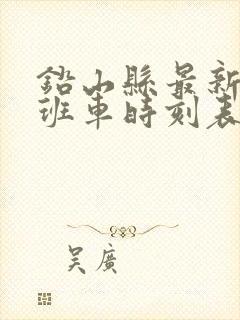 鉛山縣最新
班車時刻表
吴廣